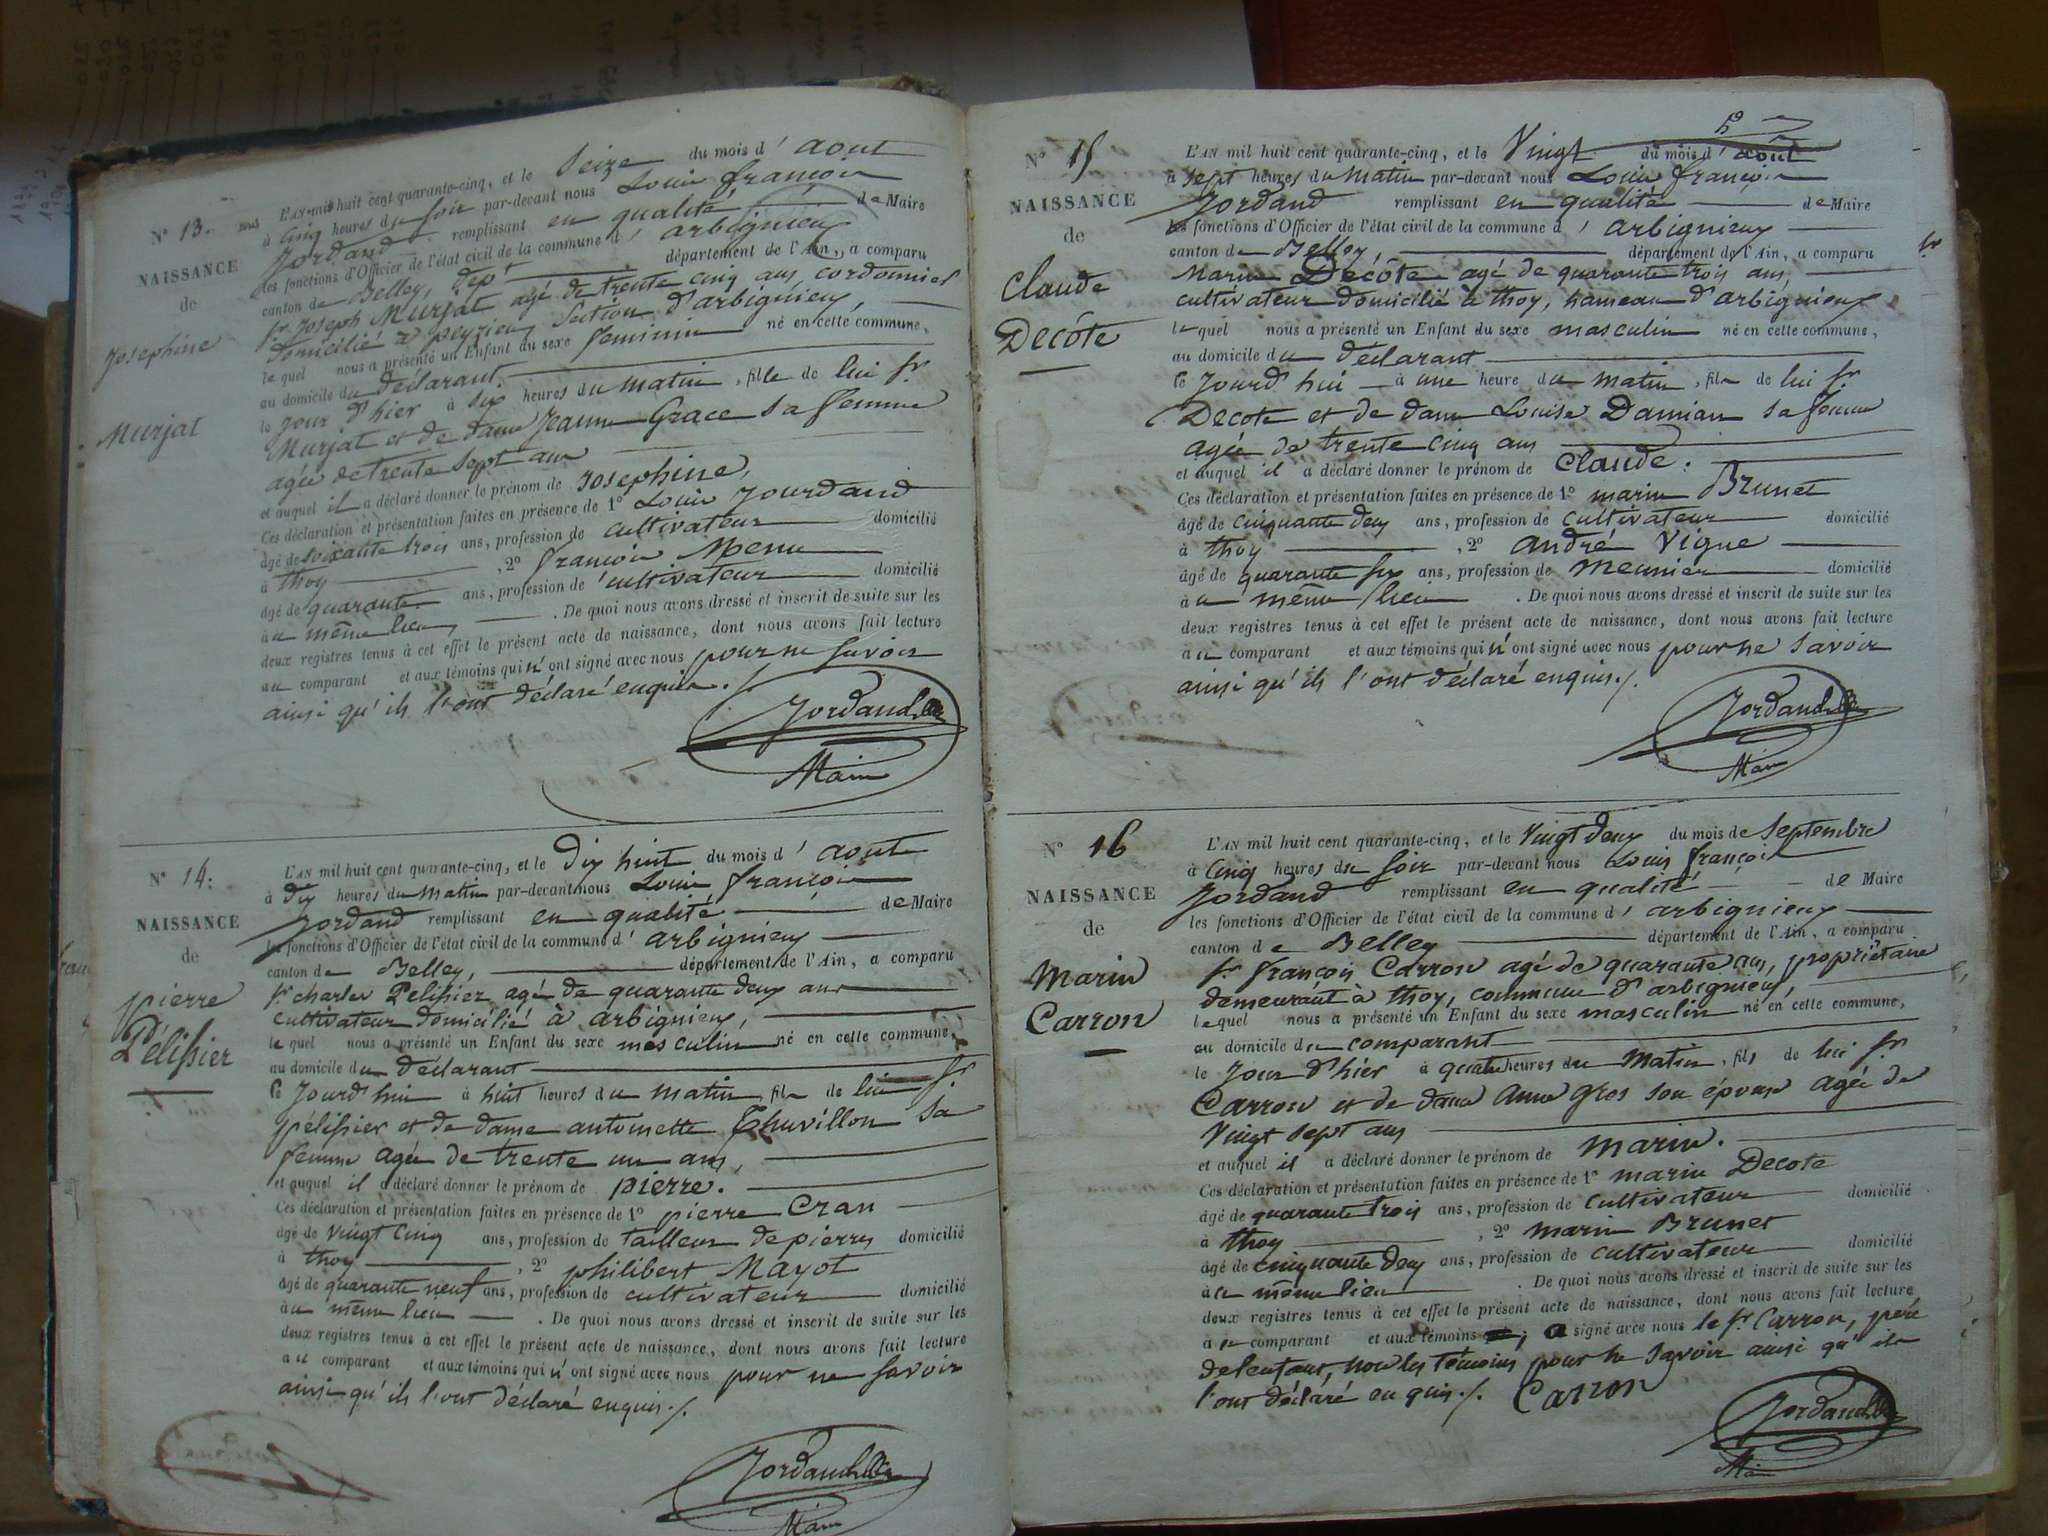 N° 13.
NAISSANCE
de
Josephine
Murjat
L'AN mil huit cent quarante-cinq, et le Seize du mois d' aout
à Cinq heures du soir par-devant nous Louis françois
Jordand remplissant en qualité de Maire
les fonctions d'Officier de l'état civil de la commune d' arbignieux
canton de Belley, dept département de l'Ain, a comparu
sr Joseph Murjat agé de trente cinq ans, cordonnier
domicilié à peyrieu section d'arbignieu,
lequel nous a présenté un Enfant du sexe feminin né en cette commune,
au domicile du déclarant.
le jour d'hier à six heures du matin, fille de lui sr
Murjat et de dame Jeanne Grace sa femme
agée de trente sept ans
et auquel il a déclaré donner le prénom de Josephine,
Ces déclaration et présentation faites en présence de 1° Louis Jourdand
âgé de soixante trois ans, profession de cultivateur domicilié
à thoy , 2° françois Menu
âgé de quarante ans, profession de cultivateur domicilié
au même lieu, . De quoi nous avons dressé et inscrit de suite sur les
deux registres tenus à cet effet le présent acte de naissance, dont nous avons fait lecture
au comparant et aux témoins qui n'ont signé avec nous pour ne savoir
ainsi qu'ils l'ont déclaré enquis ./.
Jordand
Maire
N° 14.
NAISSANCE
de
pierre
Pélissier
L'AN mil huit cent quarante-cinq, et le Dix huit du mois d' aout
à dix heures du matin par-devant nous Louis françois
Jordand remplissant en qualité de Maire
les fonctions d'Officier de l'état civil de la commune d' arbignieux
canton de Belley, département de l'Ain, a comparu
sr charles Pelissier agé de quarante deux ans
cultivateur domicilié à arbignieux,
lequel nous a présenté un Enfant du sexe masculin né en cette commune,
au domicile du déclarant
le jourd'hui à huit heures du matin, fils de lui sr
pélissier et de dame antoinette Thuvillon sa
femme agée de trente un ans,
et auquel il a déclaré donner le prénom de pierre.
Ces déclaration et présentation faites en présence de 1° pierre Cran
âgé de vingt cinq ans, profession de tailleur de pierres domicilié
à thoy , 2° philibert Mayot
âgé de quarante neuf ans, profession de cultivateur domicilié
au même lieu . De quoi nous avons dressé et inscrit de suite sur les
deux registres tenus à cet effet le présent acte de naissance, dont nous avons fait lecture
au comparant et aux témoins qui n'ont signé avec nous pour ne savoir
ainsi qu'ils l'ont déclaré enquis ./.
Jordand
Maire
N° 15
NAISSANCE
de
Claude
Decôte
L'AN mil huit cent quarante-cinq, et le Vingt du mois d' août
à sept heures du matin par-devant nous Louis françois
Jordand remplissant en qualité de Maire
les fonctions d'Officier de l'état civil de la commune d' arbignieux
canton de Belley département de l'Ain, a comparu sr
Marin Decôte agé de quarante trois ans,
cultivateur domicilié à thoy, hameau d'arbignieux
lequel nous a présenté un Enfant du sexe masculin né en cette commune,
au domicile du déclarant
le jourd'hui à une heure du matin, fils de lui sr
Decote et de dame Louise Damian sa femme
agée de trente cinq ans
et auquel il a déclaré donner le prénom de Claude.
Ces déclaration et présentation faites en présence de 1° marin Brunet
âgé de cinquante deux ans, profession de cultivateur domicilié
à thoy , 2° andré Vigne
âgé de quarante six ans, profession de meunier domicilié
au même lieu . De quoi nous avons dressé et inscrit de suite sur les
deux registres tenus à cet effet le présent acte de naissance, dont nous avons fait lecture
au comparant et aux témoins qui n'ont signé avec nous pour ne savoir
ainsi qu'ils l'ont déclaré enquis ./.
Jordand
Maire
N° 16
NAISSANCE
de
Marin
Carron
L'AN mil huit cent quarante-cinq, et le Vingt deux du mois de Septembre
à Cinq heures du soir par-devant nous Louis françois
Jordand remplissant en qualité de Maire
les fonctions d'Officier de l'état civil de la commune d' arbignieux
canton de Belley département de l'Ain, a comparu
sr françois Carron agé de quarante ans, propriétaire
demeurant à thoy, commune d'arbignieu,
lequel nous a présenté un Enfant du sexe masculin né en cette commune,
au domicile du comparant
le jour d'hier à quatre heures du matin, fils de lui sr
Carron et de dame anne gros son épouse agée de
Vingt sept ans
et auquel il a déclaré donner le prénom de marin.
Ces déclaration et présentation faites en présence de 1° marin Decote
âgé de quarante trois ans, profession de cultivateur domicilié
à thoy , 2° marin Brunet
âgé de cinquante deux ans, profession de cultivateur domicilié
au même lieu . De quoi nous avons dressé et inscrit de suite sur les
deux registres tenus à cet effet le présent acte de naissance, dont nous avons fait lecture
au comparant et aux témoins , a signé avec nous le sr Carron, père
de l'enfant, non les témoins pour ne savoir ainsi qu'ils
l'ont déclaré enquis ./. Carron
Jordand
Maire